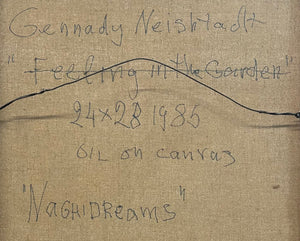 Gennady Neishtadt
"Feeling in the Garden"
24x28 1985
oil on canvas
"NaghiDreams"